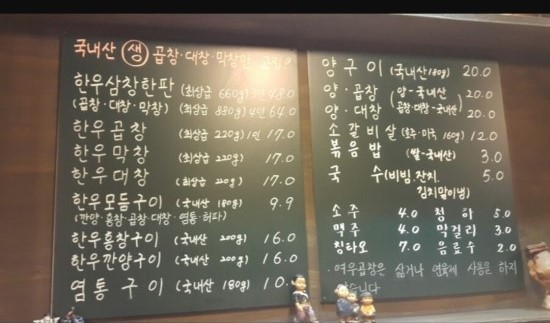 국내산 생 곱창·대창·막창만
한우삼창한판 (최상급 660g) 3인 48.0
(곱창·대창·막창) (최상급 880g) 4인 64.0
한우곱창 (최상급 220g) 1인 17.0
한우막창 (최상급 220g) 17.0
한우대창 (최상급 220g) 17.0
한우모듬구이 (국내산 180g) 9.9
(깐양·홍창·곱창·대창·염통·허파)
한우홍창구이 (국내산 200g) 16.0
한우깐양구이 (국내산 200g) 16.0
염통구이 (국내산 180g) 10.
양구이 (국내산 180g) 20.0
양·곱창 (양·국내산 20.0
양·대창 곱창·대창·국내산) 20.0
소갈비살 (호주·미국 160g) 12.0
볶음밥 (쌀-국내산) 3.0
국수 (비빔, 잔치, 5.0
김치말이냉)
소주 4.0 청하 5.0
맥주 4.0 막걸리 3.0
칭타오 7.0 음료수 2.0
·여우곱창은 삶거나 연육제 사용을 하지
않습니다